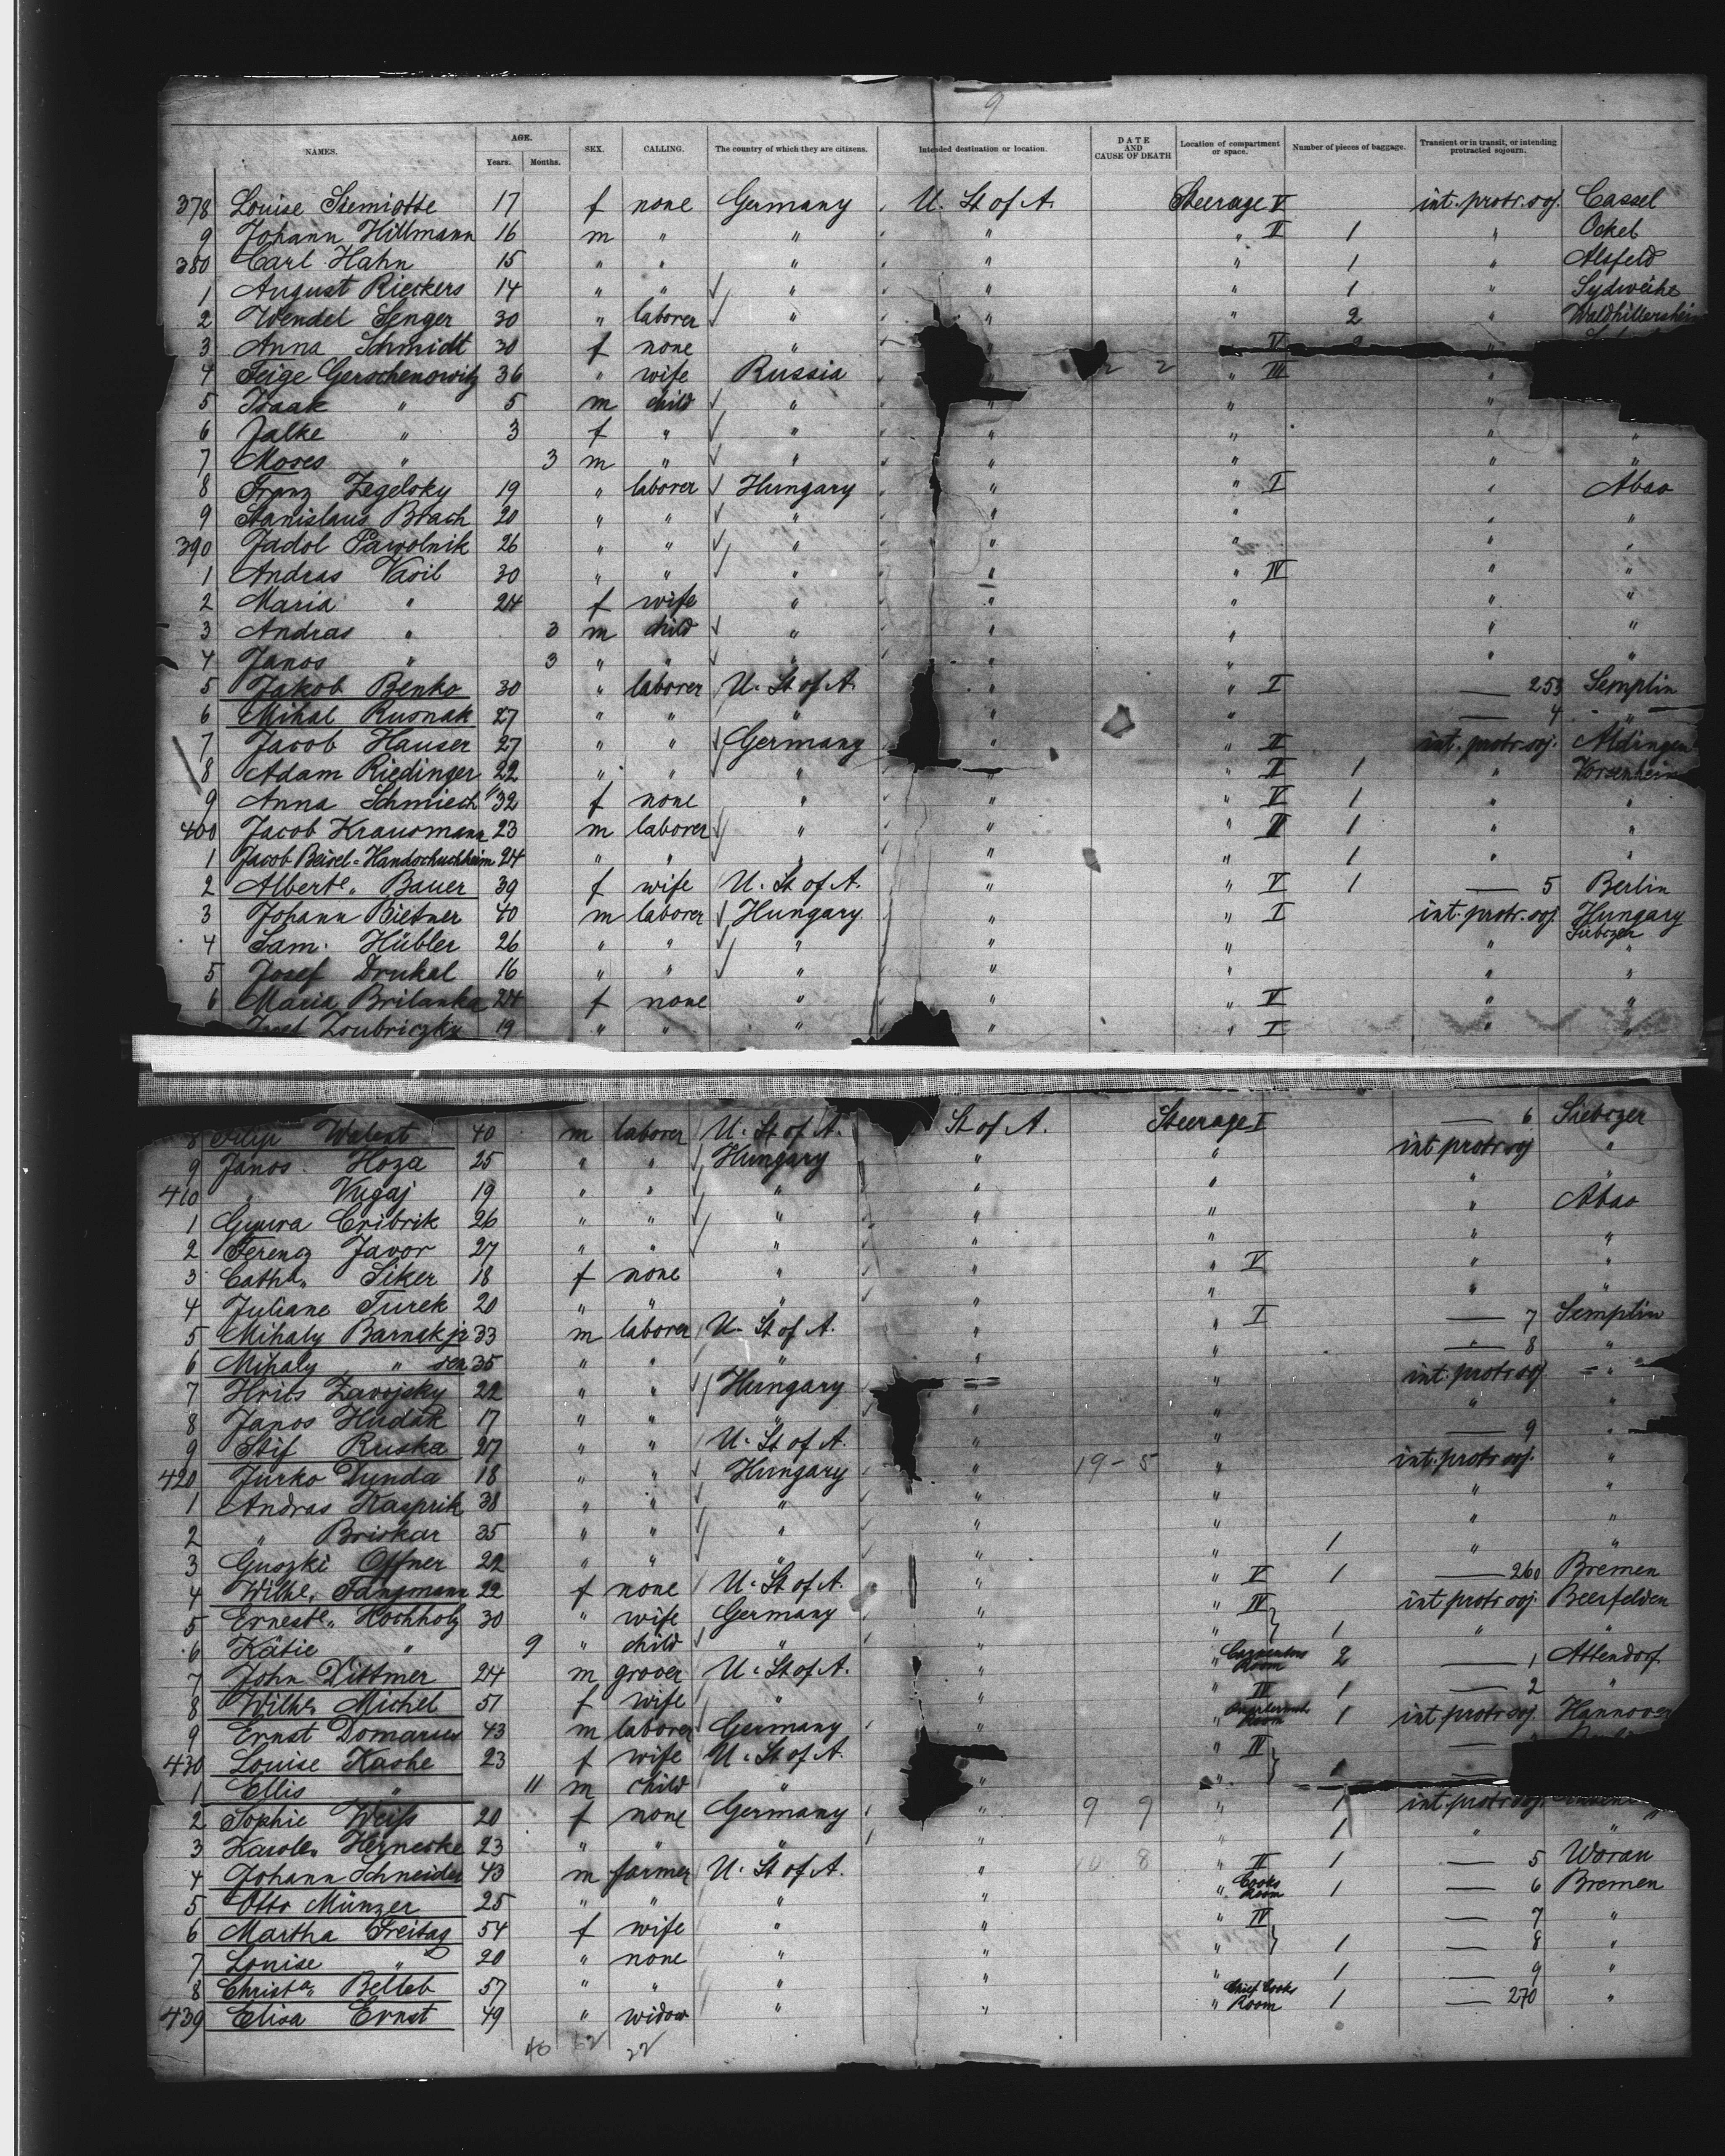 9
NAMES. AGE. Years. Months. SEX. CALLING. The country of which they are citizens. Intended destination or location. DATE AND CAUSE OF DEATH Location of compartment or space. Number of pieces of baggage. Transient or in transit, or intending protracted sojourn.
378 Louise Siemiotte 17 f none Germany U. St of A. Steerage V int. protr. soj. Cassel
9 Johann Hillmann 16 m " " " " II 1 " Ockel
380 Carl Hahn 15 " " " " " 1 " Alsfeld
1 August Rieckers 14 " " " " " 1 "
2 Wendel Senger 30 " laborer " " " 2 " Waldhillersheim
3 Anna Schmidt 30 f none " " V 2 "
4 Feige Gerschenowitz 36 " wife Russia " III "
5 Isaak " 5 m child " " " "
6 Jalke " 3 f " " " " " "
7 Moses " 3 m " " " " " "
8 Franz Zegeloky 19 " laborer Hungary " " I " Abao
9 Stanislaus Brach 20 " " " " " " "
390 Jadol Pawolnik 26 " " " " " " "
1 Andras Vasil 30 " " " " " IV " "
2 Maria " 24 f wife " " " " "
3 Andras " 3 m child " " " " "
4 Janos " 3 " " " " " " "
5 Jakob Benko 30 " laborer U. St of A. " " I — 253 Semplin
6 Mihal Rusnak 27 " " " " " — 4 "
7 Jacob Hauser 27 " " Germany " " II int. protr. soj. Aldingen
8 Adam Riedinger 22 " " " " " II 1 "
9 Anna Schmiech 32 f none " " " V 1 " "
400 Jacob Krausmann 23 m laborer " " " II 1 " "
1 Jacob Beisel-Handschuchheim 24 " " " " " 1 " "
2 Albertе. Bauer 39 f wife U. St of A. " " V 1 — 5 Berlin
3 Johann Bietner 40 m laborer Hungary " " I int. protr. soj. Hungary Siebozer
4 Sam. Hübler 26 " " " " " " "
5 Josef Drukal 16 " " " " " " "
6 Maria Brilanka 24 f none " " " V " "
Zoubriczky 19 " " " " " I " "
8 Filip Walent 40 m laborer U. St of A. St of A. Steerage I — 6 Siebozer
9 Janos Hoza 25 " " Hungary " " int. protr soj "
410 " Vugaj 19 " " " " " " "
1 Gyura Cribrik 26 " " " " " " Abao
2 Ferencz Javor 27 " " " " " " "
3 Catha. Siker 18 f none " " " V " "
4 Juliane Turek 20 " " " " " " "
5 Mihaly Barnak jr 33 m laborer U. St of A. " " I — 7 Semplin
6 Mihaly " sen 35 " " " " " — 8 "
7 Hrits Zavojsky 22 " " Hungary " " int. protr soj "
8 Janos Hudak 17 " " " " " " "
9 Stif Ruska 27 " " U. St of A. " " — 9 "
420 Jurko Dunda 18 " " Hungary " 19-5 " int. protr soj. "
1 Andras Kasprik 38 " " " " " " "
2 " Briskar 35 " " " " " " "
3 Guszki Offner 22 " " " " " 1 " "
4 Wilhe. Tangmann 22 f none U. St of A. " " V 1 — 260 Bremen
5 Erneste. Kochholz 30 " wife Germany " " IV int. protr soj. Beerfelden
6 Kätie " 9 " child " " " 1 " "
7 John Dittmer 24 m grover U. St of A. " " Carpenters Room 2 — 1 Attendorf
8 Wilhe. Michel 51 f wife " " " IV 1 — 2 "
9 Ernst Domarius 43 m laborer Germany " " Room 1 int. protr soj. Hannover
430 Louise Kashe 23 f wife U. St of A. " IV —
1 Ellis " 11 m child " " " —
2 Sophie Weiss 20 f none Germany " 9 9 " 1 int. protr soj.
3 Karole. Hernecke 23 " " " " " 1 " "
4 Johann Schneider 43 m farmer U. St of A. " 10 8 " II 1 — 5 Woran
5 Otto Münzer 25 " " " " " Cooks Room 1 — 6 Bremen
6 Martha Freitag 54 f wife " " " IV — 7 "
7 Louise " 20 " none " " " 1 — 8 "
8 Christa. Belleb 57 " " " " " 1 — 9 "
439 Elisa Ernst 49 " widow " " " Chief Cooks Room 1 — 270 "
40 62 22